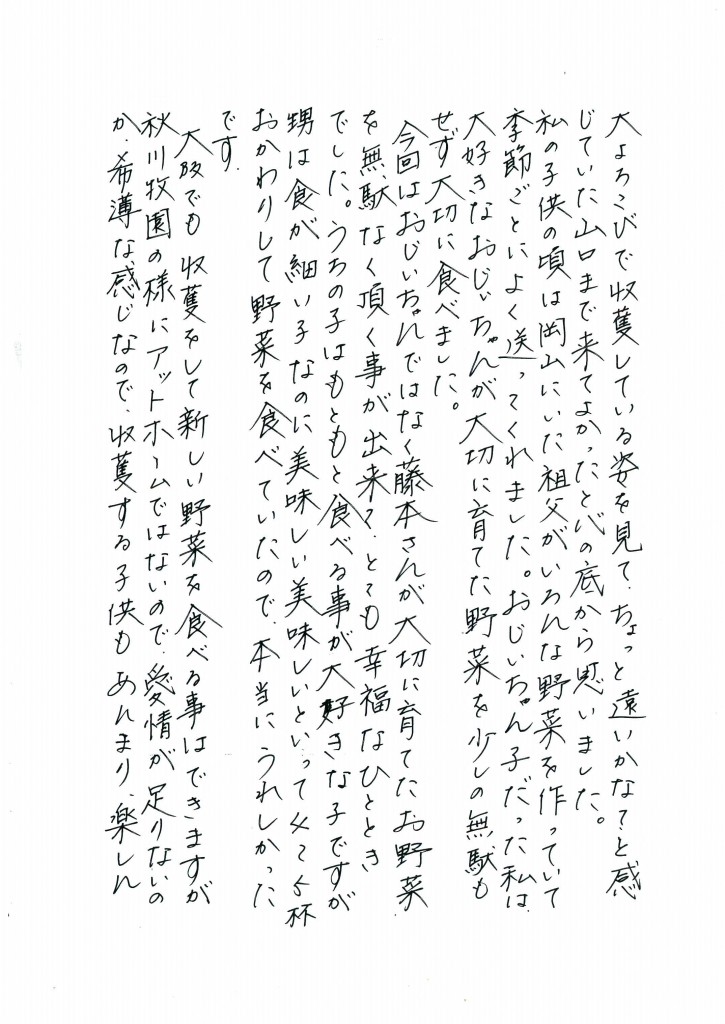 大よろこびで収穫している姿を見て、ちょっと遠いかな？と感
じていた山口まで来てよかったと心の底から思いました。
私の子供の頃は岡山にいた祖父がいろんな野菜を作っていて
季節ごとによく送ってくれました。おじいちゃん子だった私は、
大好きなおじいちゃんが大切に育てた野菜を少しの無駄も
せず大切に食べました。
今回はおじいちゃんではなく藤本さんが大切に育てたお野菜
を無駄なく頂く事が出来て、とても幸福なひととき
でした。うちの子はもともと食べる事が大好きな子ですが
甥は食が細い子なのに美味しい美味しいといって4〜5杯
おかわりして野菜を食べていたので、本当にうれしかった
です。
大阪でも収穫をして新しい野菜を食べる事はできますが
秋川牧園の様にアットホームではないので、愛情が足りないの
か、希薄な感じなので、収穫する子供もあんまり、楽しん